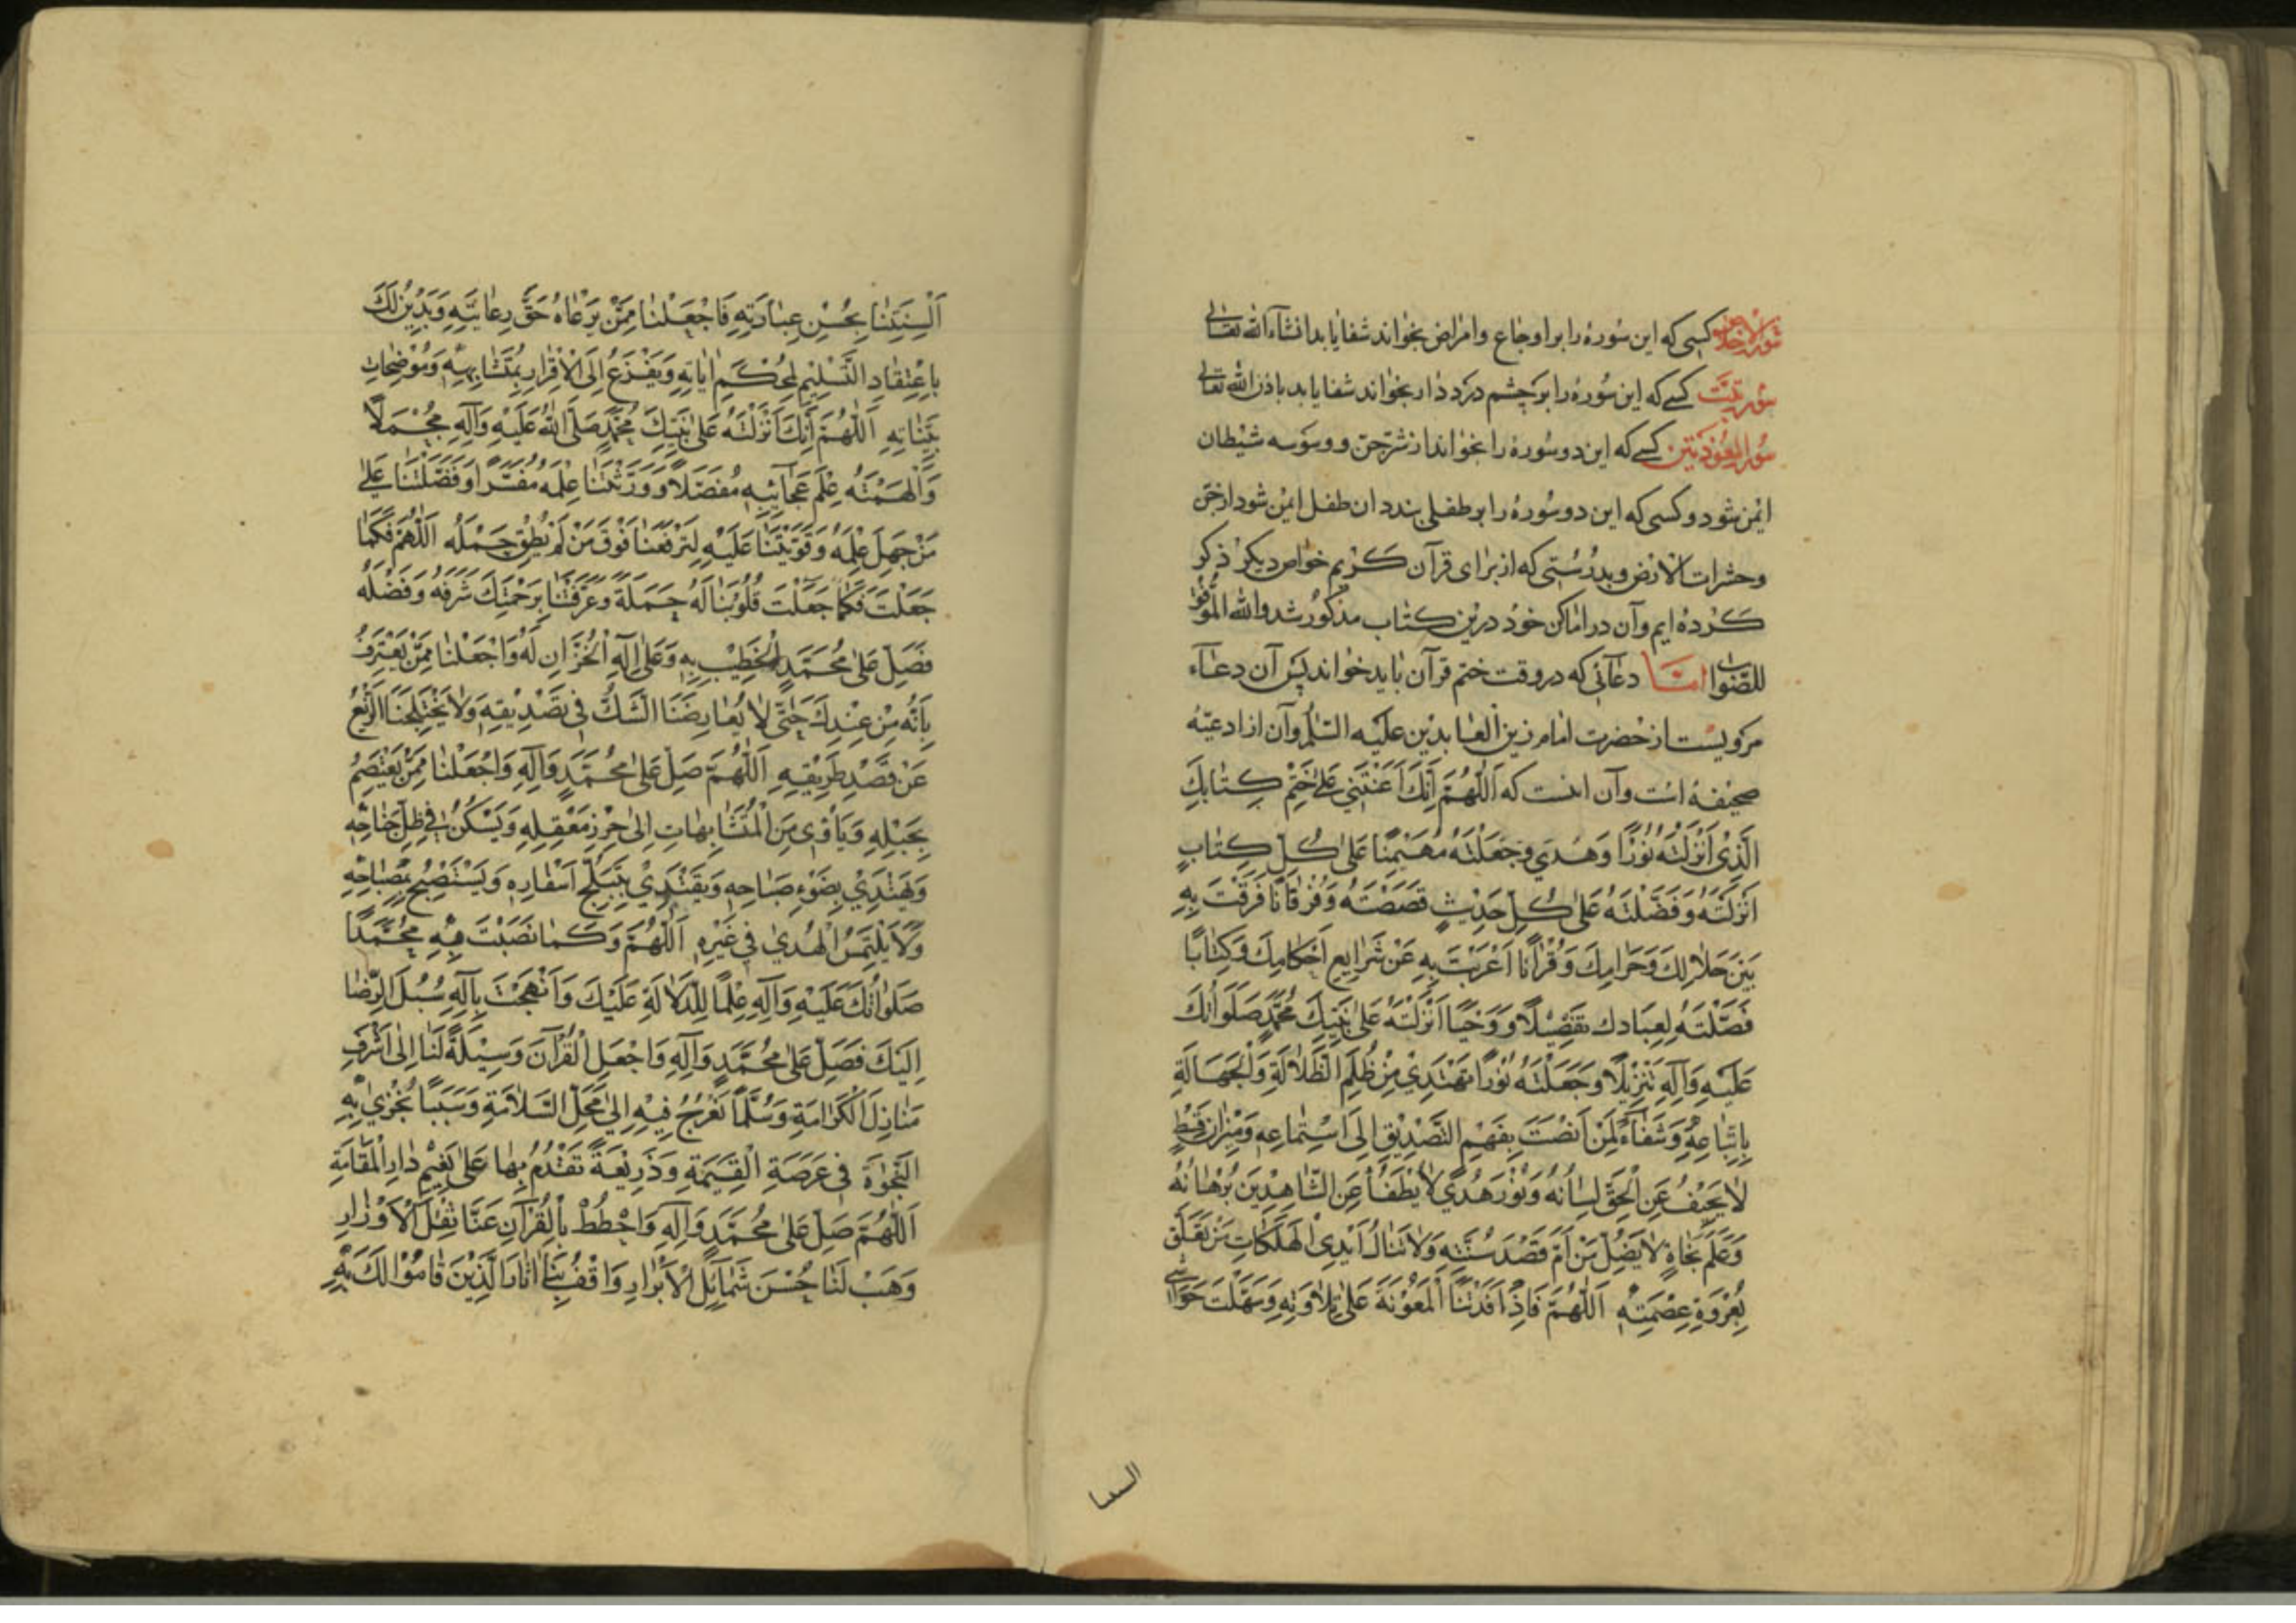 سورة الاخلاص کسی که این سُورهٔ را بر اوجاع و امراض بخواند شفا یابد انشآء الله تعالی
سُورة تبَّت کسے که این سُورهٔ را بر چشم درد دار بخواند شفا یابد باذن الله تعالی
سُورة المعوّذتین کسے که این دو سُورهٔ را بخواند از شرّ جن و وسوَسه شیْطان
ایْمن شود و کسی که این دو سُورهٔ را بر طفلی بندد ان طفل ایْمن شود از جنّ
و حشرات الارض و بدرُستی که از برای قرآن کریم خواص دیکر ذکر
کرده ایم و آن در اماکن خود درین کتاب مذکور شد والله الموُفّق
للصّواب امّا دعآئی که در وقت ختم قرآن باید خواند پس آن دعآء
مرویست از حضرت امام زین العابدین علیه السّلم و آن از ادعیّه
صحیفه است و آن اینست که اَللّٰهُمَّ اِنَّكَ اَعَنْتَنِي عَلىٰ خَتْمِ كِتَابِكَ
الَّذِي اَنْزَلْتَهُ نُوْرًا وَهُدًي وَجَعَلْتَهُ مُهَيْمِنًا عَلىٰ كُلِّ كِتَابٍ
اَنْزَلْتَهُ وَفَضَّلْتَهُ عَلىٰ كُلِّ حَدِيْثٍ قَصَصْتَهُ وَفُرْقَانًا فَرَقْتَ بِهِ
بَيْنَ حَلَالِكَ وَحَرَامِكَ وَقُرْاٰنًا اَعْرَبْتَ بِهِ عَنْ شَرَايِعِ اَحْكَامِكَ وَكِتَابًا
فَصَّلْتَهُ لِعِبَادِكَ تَفْصِيْلًا وَوَحْيًا اَنْزَلْتَهُ عَلىٰ نَبِيِّكَ مُحَمَّدٍ صَلَوَاتُكَ
عَلَيْهِ وَآلِهِ تَنْزِيْلًا وَجَعَلْتَهُ نُوْرًا نَهْتَدِيْ مِنْ ظُلَمِ الظَّلَالَةِ وَالْجَهَالَةِ
بِاِتِّبَاعِهِ وَشَفَآءً لِمَنْ اَنْصَتَ بِفَهْمِ التَّصْدِيْقِ اِلَى اسْتِمَاعِهِ وَمِيْزَانَ قِسْطٍ
لَا يَحِيْفُ عَنِ الْحَقِّ لِسَانُهُ وَنُوْرَ هُدًي لَا يَطْفَأُ عَنِ الشَّاهِدِيْنَ بُرْهَانُهُ
وَعَلَمَ نَجَاةٍ لَا يَضِلُّ مَنْ اَمَّ قَصْدَ سُنَّتِهِ وَلَا تَنَالُ اَيْدِي الْهَلَكَاتِ مَنْ تَعَلَّقَ
بِعُرْوَةِ عِصْمَتِهِ اَللّٰهُمَّ فَاِذْ اَفَدْتَنَا الْمَعُوْنَةَ عَلىٰ تِلَاوَتِهِ وَسَهَّلْتَ حَوَاشِي
السنتنا
اَلْسِنَتِنَا بِحُسْنِ عِبَارَتِهِ فَاجْعَلْنَا مِمَّنْ يَرْعَاهُ حَقَّ رِعَايَتِهِ وَيَدِيْنُ لَكَ
بِاعْتِقَادِ التَّسْلِيْمِ لِمُحْكَمِ اٰيَاتِهِ وَيَفْزَعُ اِلَى الْاِقْرَارِ بِمُتَشَابِهِهِ وَمُوْضِحَاتِ
بَيِّنَاتِهِ اَللّٰهُمَّ اِنَّكَ اَنْزَلْتَهُ عَلىٰ نَبِيِّكَ مُحَمَّدٍ صَلَّى اللّٰهُ عَلَيْهِ وَآلِهِ مُجْمَلًا
وَاَلْهَمْتَهُ عِلْمَ عَجَآئِبِهِ مُفَصَّلًا وَوَرَّثْتَنَا عِلْمَهُ مُفَسَّرًا وَفَضَّلْتَنَا عَلىٰ
مَنْ جَهِلَ عِلْمَهُ وَقَوَّيْتَنَا عَلَيْهِ لِتَرْفَعَنَا فَوْقَ مَنْ لَمْ يُطِقْ حَمْلَهُ اَللّٰهُمَّ فَكَمَا
جَعَلْتَ فَكَمَا جَعَلْتَ قُلُوْبَنَا لَهُ حَمَلَةً وَعَرَّفْتَنَا بِرَحْمَتِكَ شَرَفَهُ وَفَضْلَهُ
فَصَلِّ عَلىٰ مُحَمَّدٍ الْخَطِيْبِ بِهِ وَعَلىٰ آلِهِ الْخُزَّانِ لَهُ وَاجْعَلْنَا مِمَّنْ يَعْتَرِفُ
بِاَنَّهُ مِنْ عِنْدِكَ حَتّٰى لَا يُعَارِضَنَا الشَّكُّ فِي تَصْدِيْقِهِ وَلَا يَخْتَلِجَنَا الزَّيْغُ
عَنْ قَصْدِ طَرِيْقِهِ اَللّٰهُمَّ صَلِّ عَلىٰ مُحَمَّدٍ وَآلِهِ وَاجْعَلْنَا مِمَّنْ يَعْتَصِمُ
بِحَبْلِهِ وَيَأْوِي مِنَ الْمُتَشَابِهَاتِ اِلىٰ حِرْزِ مَعْقِلِهِ وَيَسْكُنُ فِي ظِلِّ جَنَاحِهِ
وَيَهْتَدِيْ بِضَوْءِ صَبَاحِهِ وَيَقْتَدِيْ بِتَبَلُّجِ اَسْفَارِهِ وَيَسْتَصْبِحُ بِمِصْبَاحِهِ
وَلَا يَلْتَمِسُ الْهُدىٰ فِي غَيْرِهِ اَللّٰهُمَّ وَكَمَا نَصَبْتَ فِيْهِ مُحَمَّدًا
صَلَوَاتُكَ عَلَيْهِ وَآلِهِ عِلْمًا لِلدَّلَالَةِ عَلَيْكَ وَاَنْهَجْتَ بِآلِهِ سُبُلَ الرِّضَا
اِلَيْكَ فَصَلِّ عَلىٰ مُحَمَّدٍ وَآلِهِ وَاجْعَلِ الْقُرْآنَ وَسِيْلَةً لَنَا اِلىٰ اَشْرَفِ
مَنَازِلِ الْكَرَامَةِ وَسُلَّمًا نَعْرُجُ فِيْهِ اِلىٰ مَحَلِّ السَّلَامَةِ وَسَبَبًا نُجْزىٰ بِهِ
النَّجٰوةَ فِي عَرَصَةِ الْقِيٰمَةِ وَذَرِيْعَةً نَقْدَمُ بِهَا عَلىٰ نَعِيْمِ دَارِ الْمُقَامَةِ
اَللّٰهُمَّ صَلِّ عَلىٰ مُحَمَّدٍ وَآلِهِ وَاحْطُطْ بِالْقُرْآنِ عَنَّا ثِقْلَ الْاَوْزَارِ
وَهَبْ لَنَا حُسْنَ شَمَائِلِ الْاَبْرَارِ وَاقْفُ بِنَا اٰثَارَ الَّذِيْنَ قَامُوْا لَكَ بِهِ